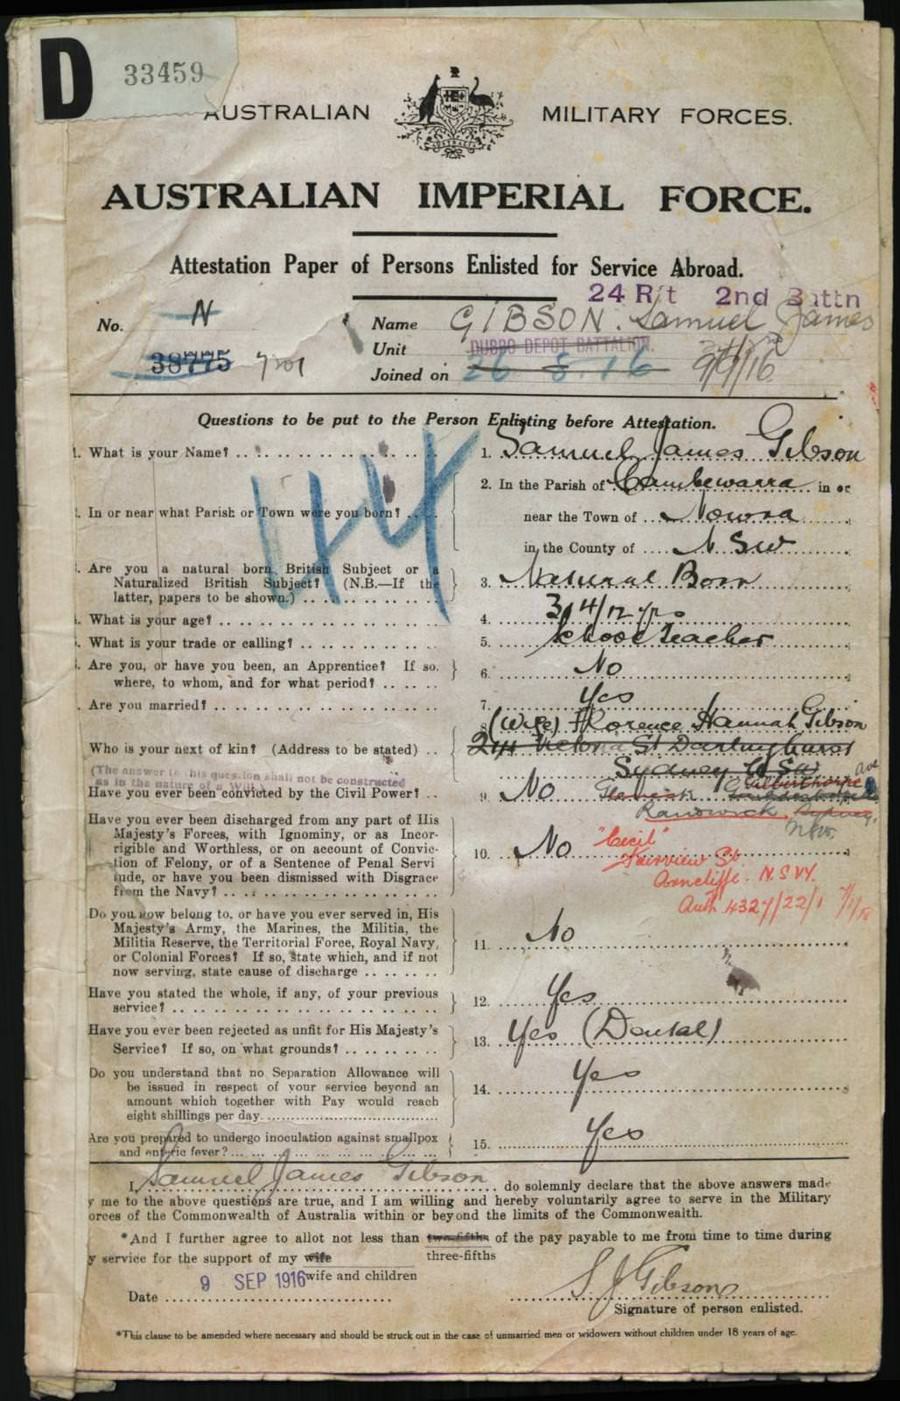 D 33459
AUSTRALIAN MILITARY FORCES.
AUSTRALIAN IMPERIAL FORCE.
Attestation Paper of Persons Enlisted for Service Abroad.
24 R/t 2nd Battn
No. N Name GIBSON. Samuel James
38775 7201 Unit DUBBO DEPOT BATTALION.
Joined on 26 8.16 9/9/16
Questions to be put to the Person Enlisting before Attestation.
44
1. What is your Name? .. 1. Samuel James Gibson
2. In the Parish of Cambewarra in or
. In or near what Parish or Town were you born? .. near the Town of Nowra
in the County of N SW
. Are you a natural born British Subject or a
Naturalized British Subject? (N.B.—If the 3. Natural Born
latter, papers to be shown.)
. What is your age? 4. 31 4/12 yrs
. What is your trade or calling? 5. School teacher
. Are you, or have you been, an Apprentice? If so, 6. No
where, to whom, and for what period?
. Are you married? 7. Yes
8. (Wife) Florence Hannah Gibson
Who is your next of kin? (Address to be stated) .. 241 Victoria St Darlinghurst
Sydney N SW
(The answer to this question shall not be constructed
as in the nature of a Will)
Gilberthorpe ave
Have you ever been convicted by the Civil Power? .. 9. No
Randwick, Sydney.
NSW.
Have you ever been discharged from any part of His
Majesty's Forces, with Ignominy, or as Incor-
rigible and Worthless, or on account of Convic-
tion of Felony, or of a Sentence of Penal Servi
tude, or have you been dismissed with Disgrace
from the Navy?
10. No "Cecil"
Fairview St.
Arncliffe. N.S.W.
Auth 4327/22/1 7/1/18
Do you now belong to, or have you ever served in, His
Majesty's Army, the Marines, the Militia, the
Militia Reserve, the Territorial Force, Royal Navy,
or Colonial Forces? If so, state which, and if not
now serving, state cause of discharge
11. No
Have you stated the whole, if any, of your previous
service?
12. Yes
Have you ever been rejected as unfit for His Majesty's
Service? If so, on what grounds?
13. Yes (Dental)
Do you understand that no Separation Allowance will
be issued in respect of your service beyond an
amount which together with Pay would reach
eight shillings per day.
14. Yes
Are you prepared to undergo inoculation against smallpox
and enteric fever?
15. Yes
I, Samuel James Gibson do solemnly declare that the above answers made
y me to the above questions are true, and I am willing and hereby voluntarily agree to serve in the Military
orces of the Commonwealth of Australia within or beyond the limits of the Commonwealth.
*And I further agree to allot not less than two-fifths of the pay payable to me from time to time during
three-fifths
y service for the support of my wife
wife and children
Date 9 SEP 1916
S J Gibson
Signature of person enlisted.
*This clause to be amended where necessary and should be struck out in the case of unmarried men or widowers without children under 18 years of age.